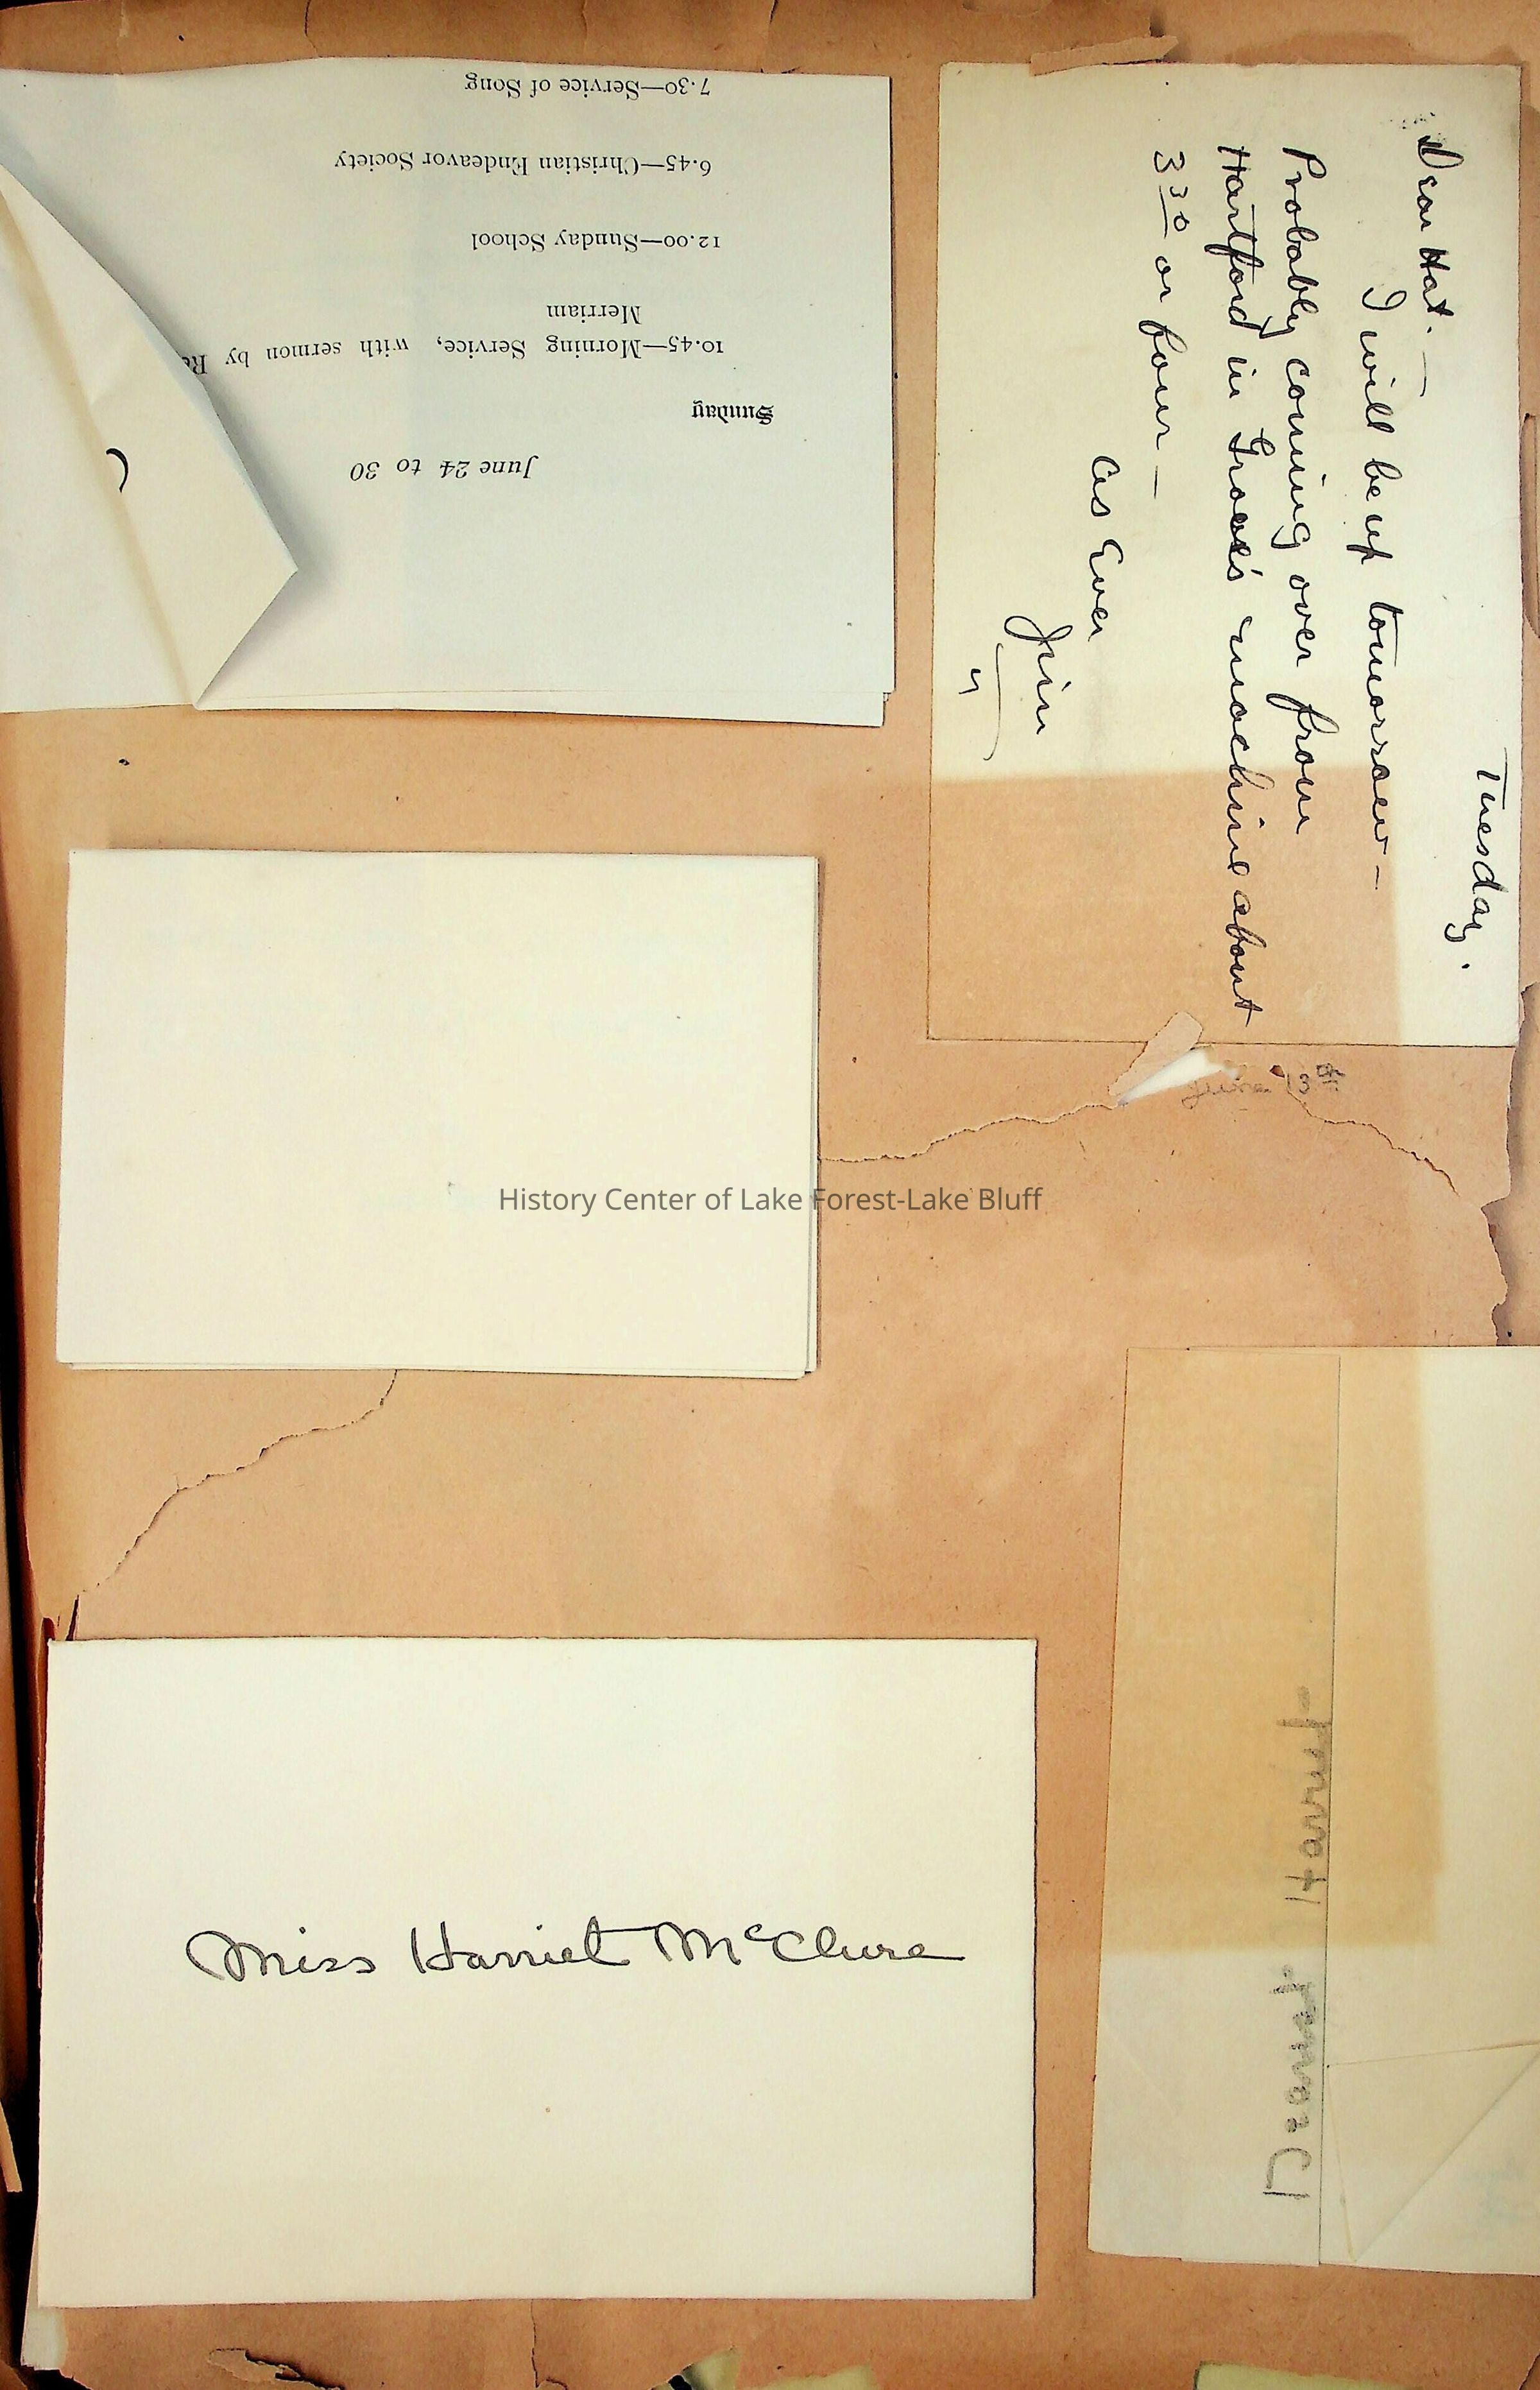 June 24 to 30
Sunday
10.45—Morning Service, with sermon by
Merriam
12.00—Sunday School
6.45—Christian Endeavor Society
7.30—Service of Song
Tuesday.
Dear Hat. —
I will be up tomorrow —
Probably coming over from
Hartford in machine about
3 30 or four —
As Ever
Jim
June 13th
History Center of Lake Forest-Lake Bluff
Miss Harriet McClure
Dearest Harriet-